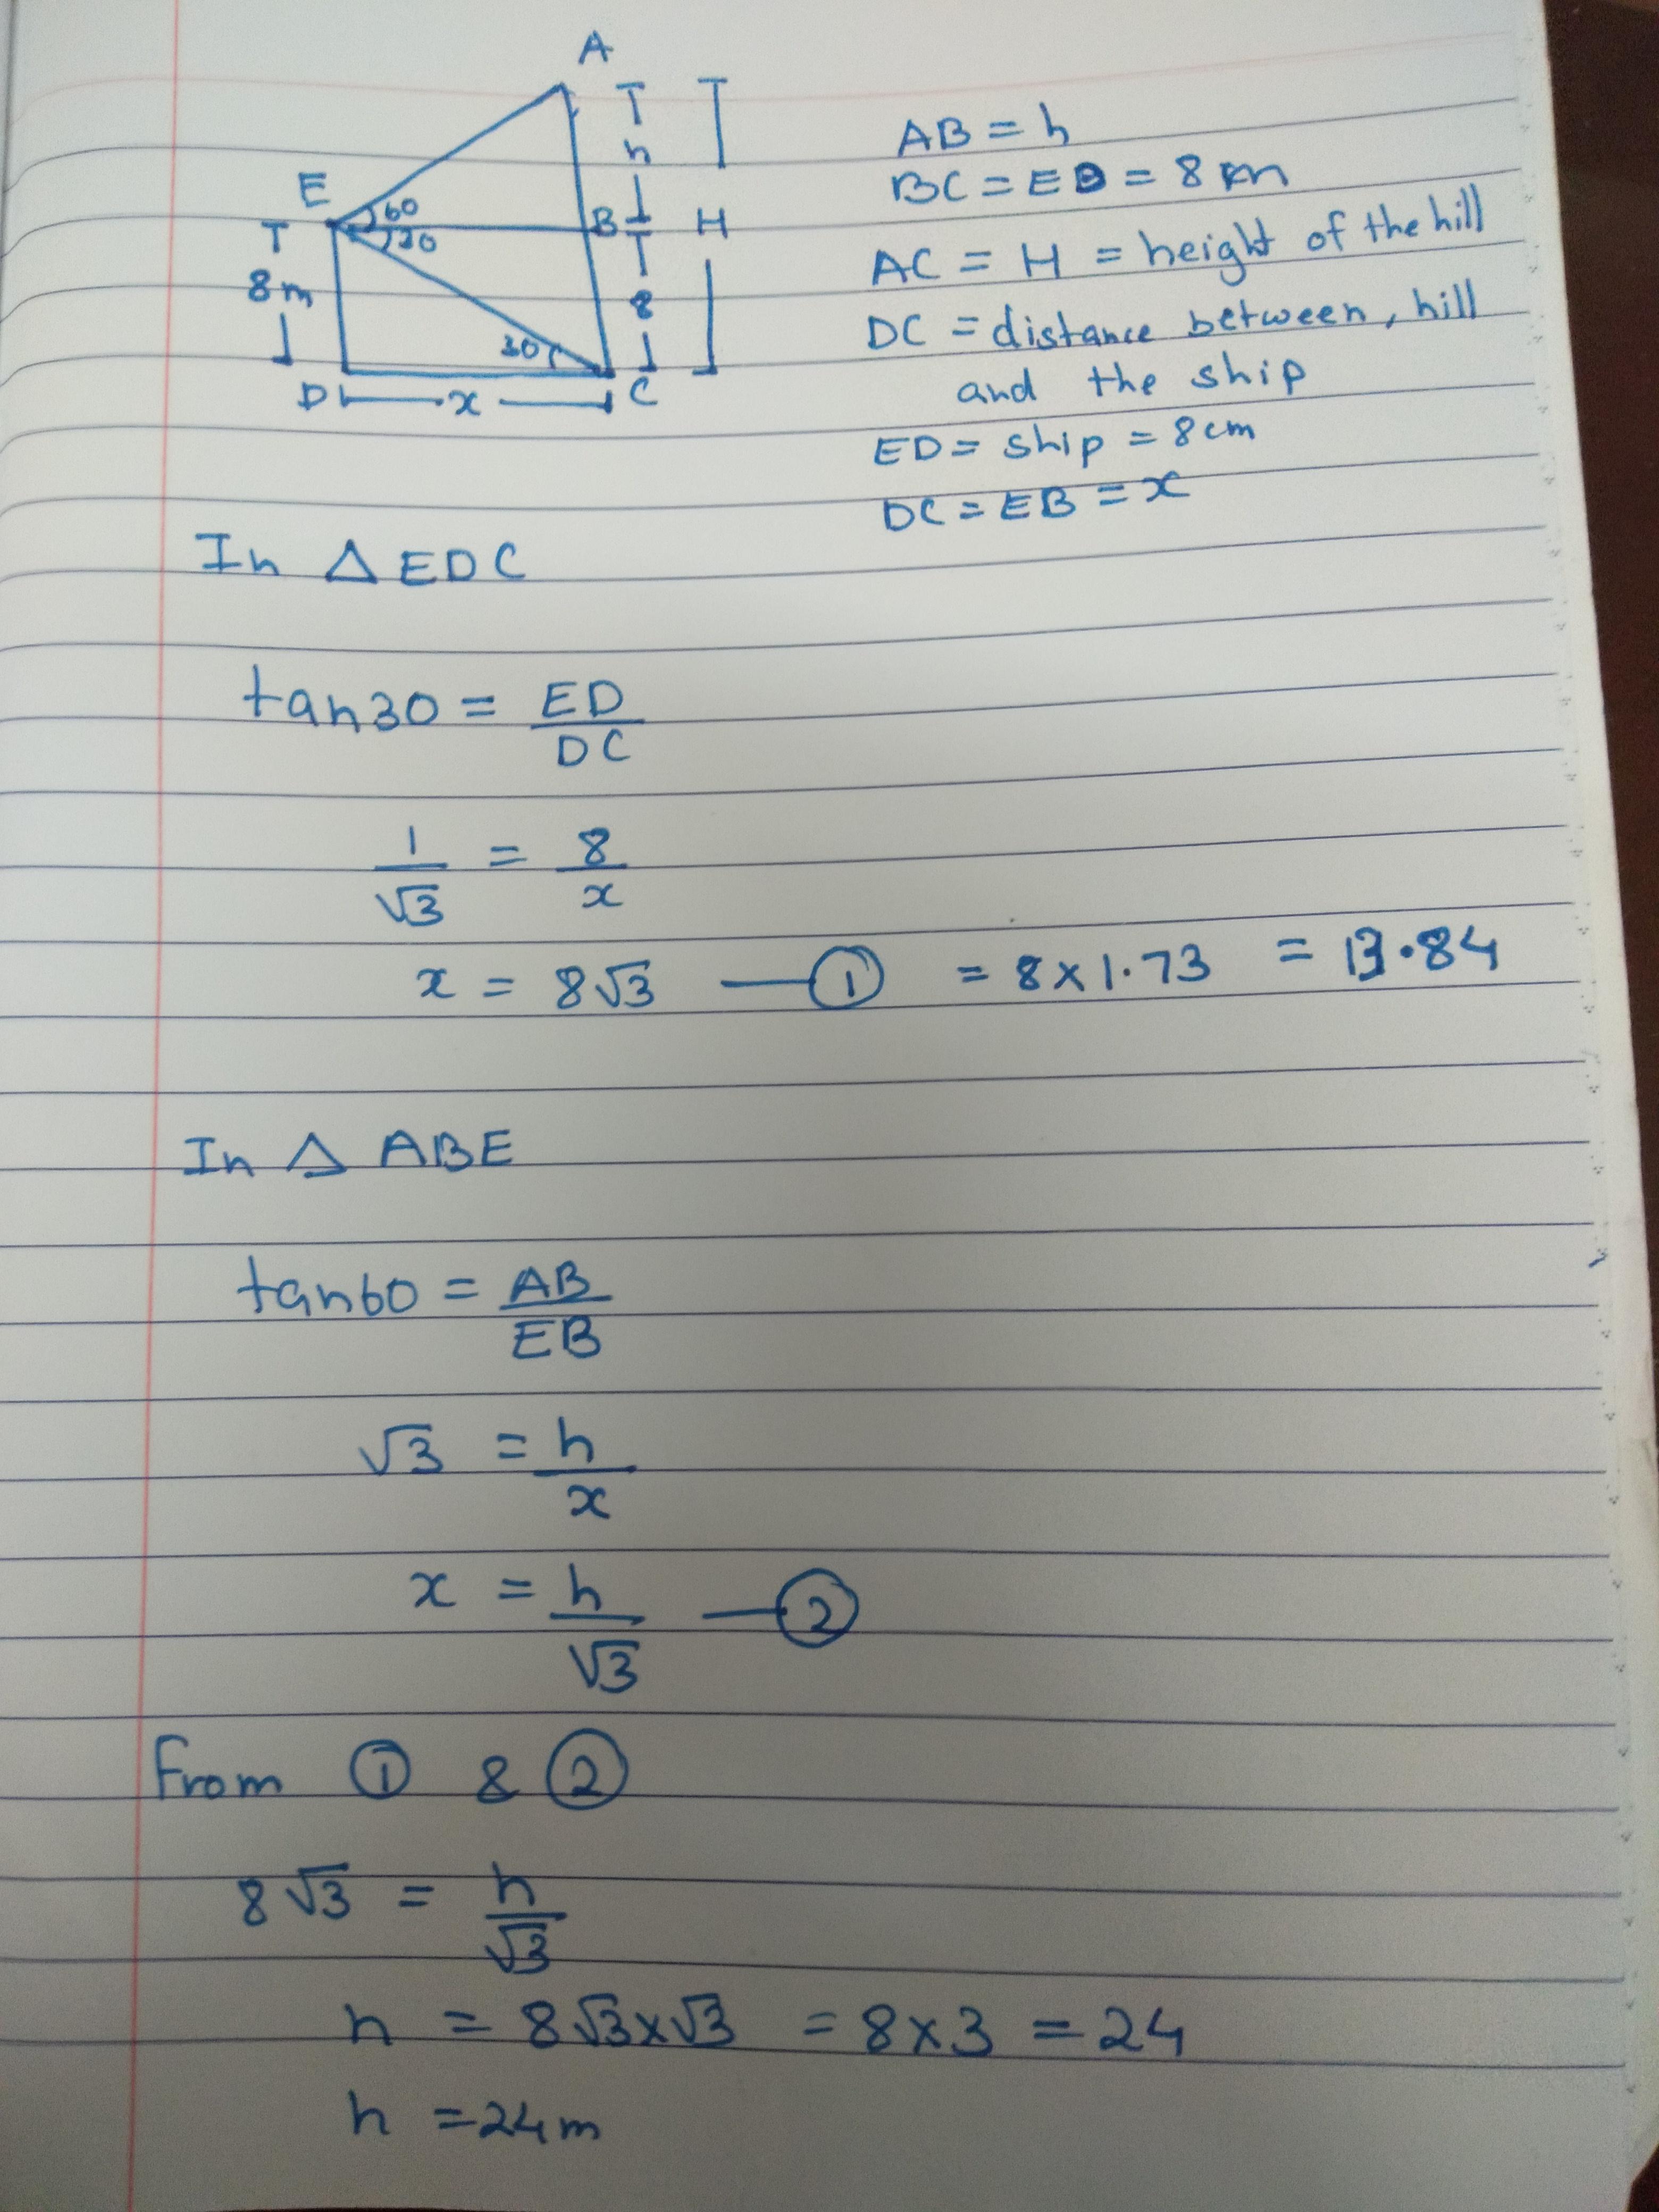 A
T
h
E
60
30
B
T
H
T
8m
8
30
D
x
C
AB = h
BC = ED = 8 m
AC = H = height of the hill
DC = distance between, hill
and the ship
ED = ship = 8cm
DC = EB = x
In △ EDC
tan30 = ED/DC
1/√3 = 8/x
x = 8√3 — ① = 8×1.73 = 13.84
In △ ABE
tan60 = AB/EB
√3 = h/x
x = h/√3 — ②
From ① & ②
8√3 = h/√3
h = 8√3×√3 = 8×3 = 24
h = 24m